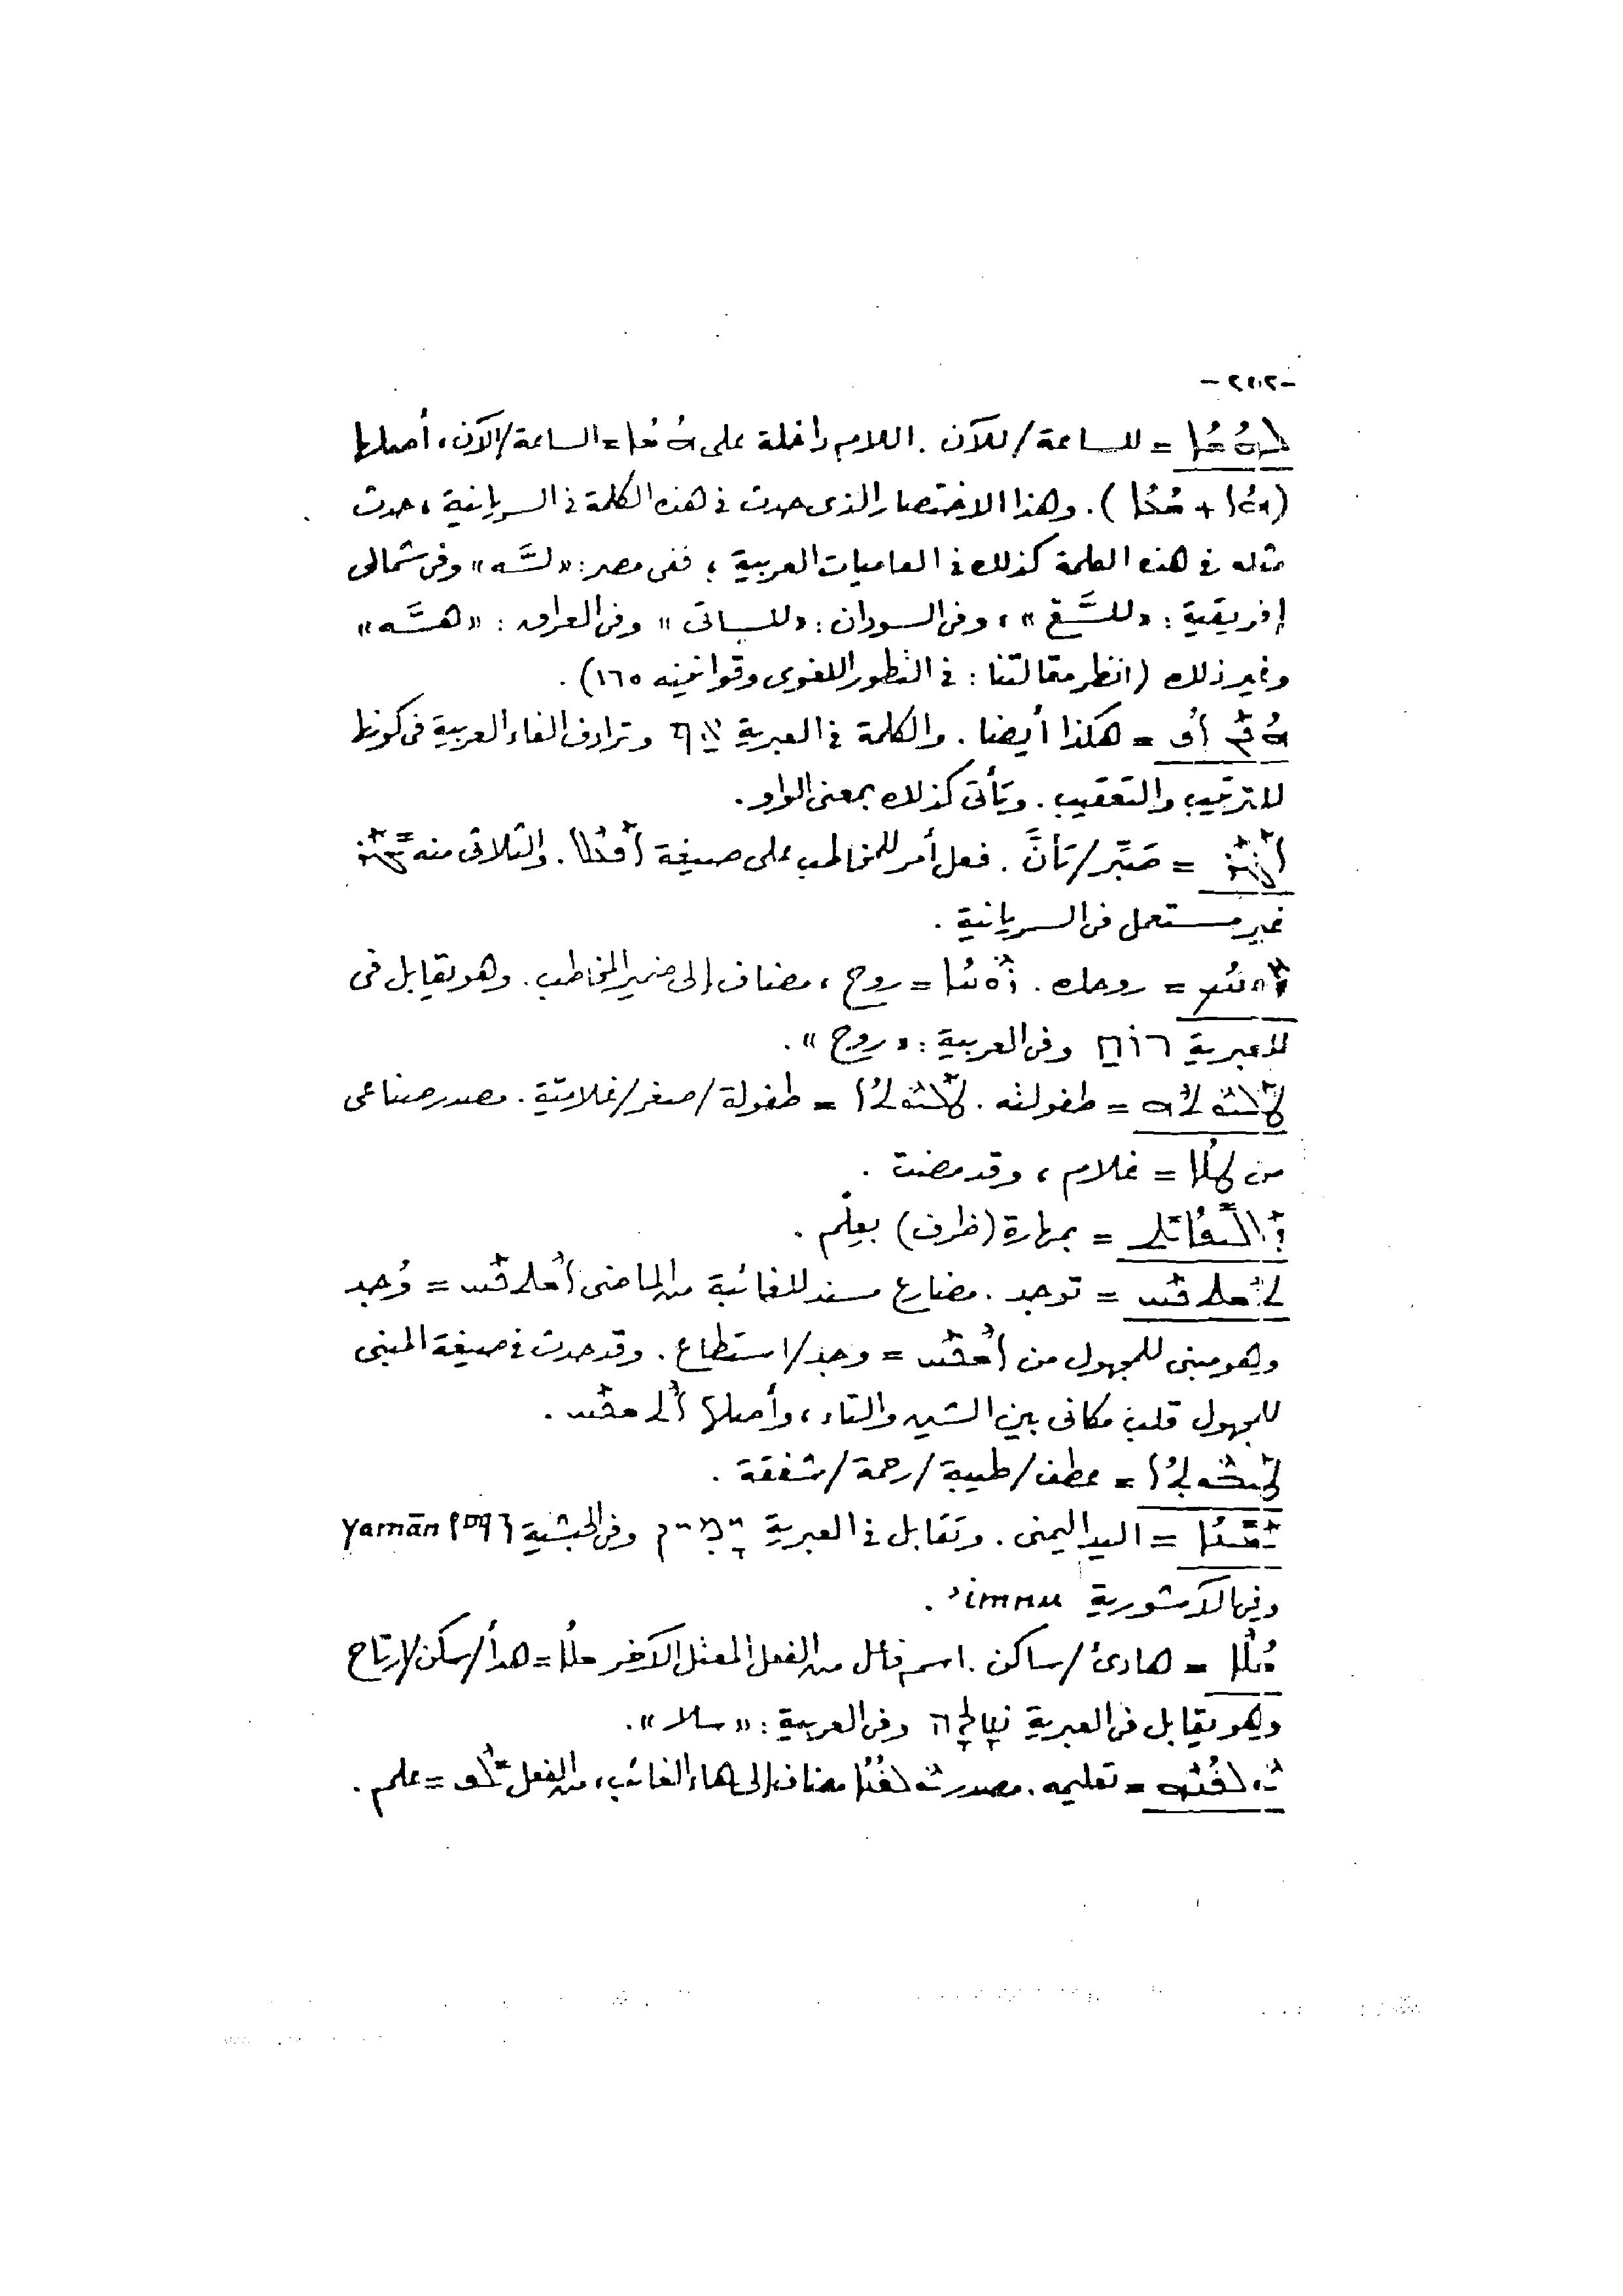 ܠܗܫܐ = للساعة/للآن. اللام داخلة على ܗܫܐ = الساعة/الآن، أصلها
(ܗܐ + ܫܥܐ). وهذا الاختصار الذى حدث فى هذه الكلمة فى السريانية، حدث
مثله فى هذه الكلمة كذلك فى العاميات العربية؛ ففى مصر: «لسَّه» وفى شمالى
إفريقية: «للسَّع»، وفى السودان: «للساتى» وفى العراق: «هسَّه»
وغير ذلك (انظر مقالتنا: فى التطور اللغوى وقوانينه ١٦٥).
ܗܟܢ ܐܦ = هكذا أيضا. والكلمة فى العبرية אַף وترادف الفاء العربية فى كونها
للترتيب والتعقيب. وتأتى كذلك بمعنى الواو.
= صَبِّر/تأنَّ. فعل أمر للمخاطب على صيغة ܐܦܥܠ. والثلاثى منه ܢܓܪ
غير مستعمل فى السريانية.
ܪܘܚܟ = روحك. ܪܘܚܐ = روح، مضاف إلى ضمير المخاطب. وهو يقابل فى
العبرية רוּחַ وفى العربية: «روح».
ܛܠܝܘܬܗ = طفولته. ܛܠܝܘܬܐ = طفولة/صغر/غلاميّة. مصدر صناعى
من ܛܠܐ = غلام، وقد مضت.
= بمهارة (ظرف) بعِلْم.
ܬܫܬܟܚ = توجد. مضارع مسند للغائبة من الماضى ܐܫܬܟܚ = وُجد
وهو مبنى للمجهول من ܐܫܟܚ = وجد/استطاع. وقد حدث فى صيغة المبنى
للمجهول قلب مكانى بين الشين والتاء، وأصلها ܐܬܫܟܚ.
ܛܝܒܘܬܐ = عطف/طيبة/رحمة/شفقة.
ܝܡܝܢܐ = اليد اليمنى. وتقابل فى العبرية יָמִין وفى الحبشية የማን yamān
وفى الآشورية ʾimnu.
ܫܠܐ = هادئ/ساكن. اسم فاعل من الفعل المعتل الآخر ܫܠܐ = هدأ/سكن/ارتاح
وهو يقابل فى العبرية שָׁלָה وفى العربية: «سلا».
ܝܘܠܦܢܗ = تعليمه. مصدر ܝܘܠܦܢܐ مضاف إلى هاء الغائب، من الفعل ܝܠܦ = علم.